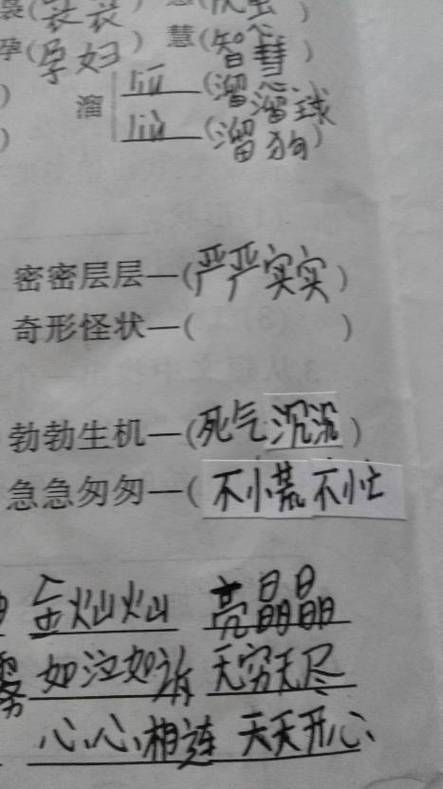 袅(袅袅)
孕(孕妇) 慧(智慧)
) 溜 liū (溜溜球
) liù (溜狗)
密密层层—(严严实实)
奇形怪状—( )
勃勃生机—(死气沉沉)
急急匆匆—(不小荒不小忙
金灿灿 亮晶晶
如泣如诉 无穷无尽
心心相连 天天开心